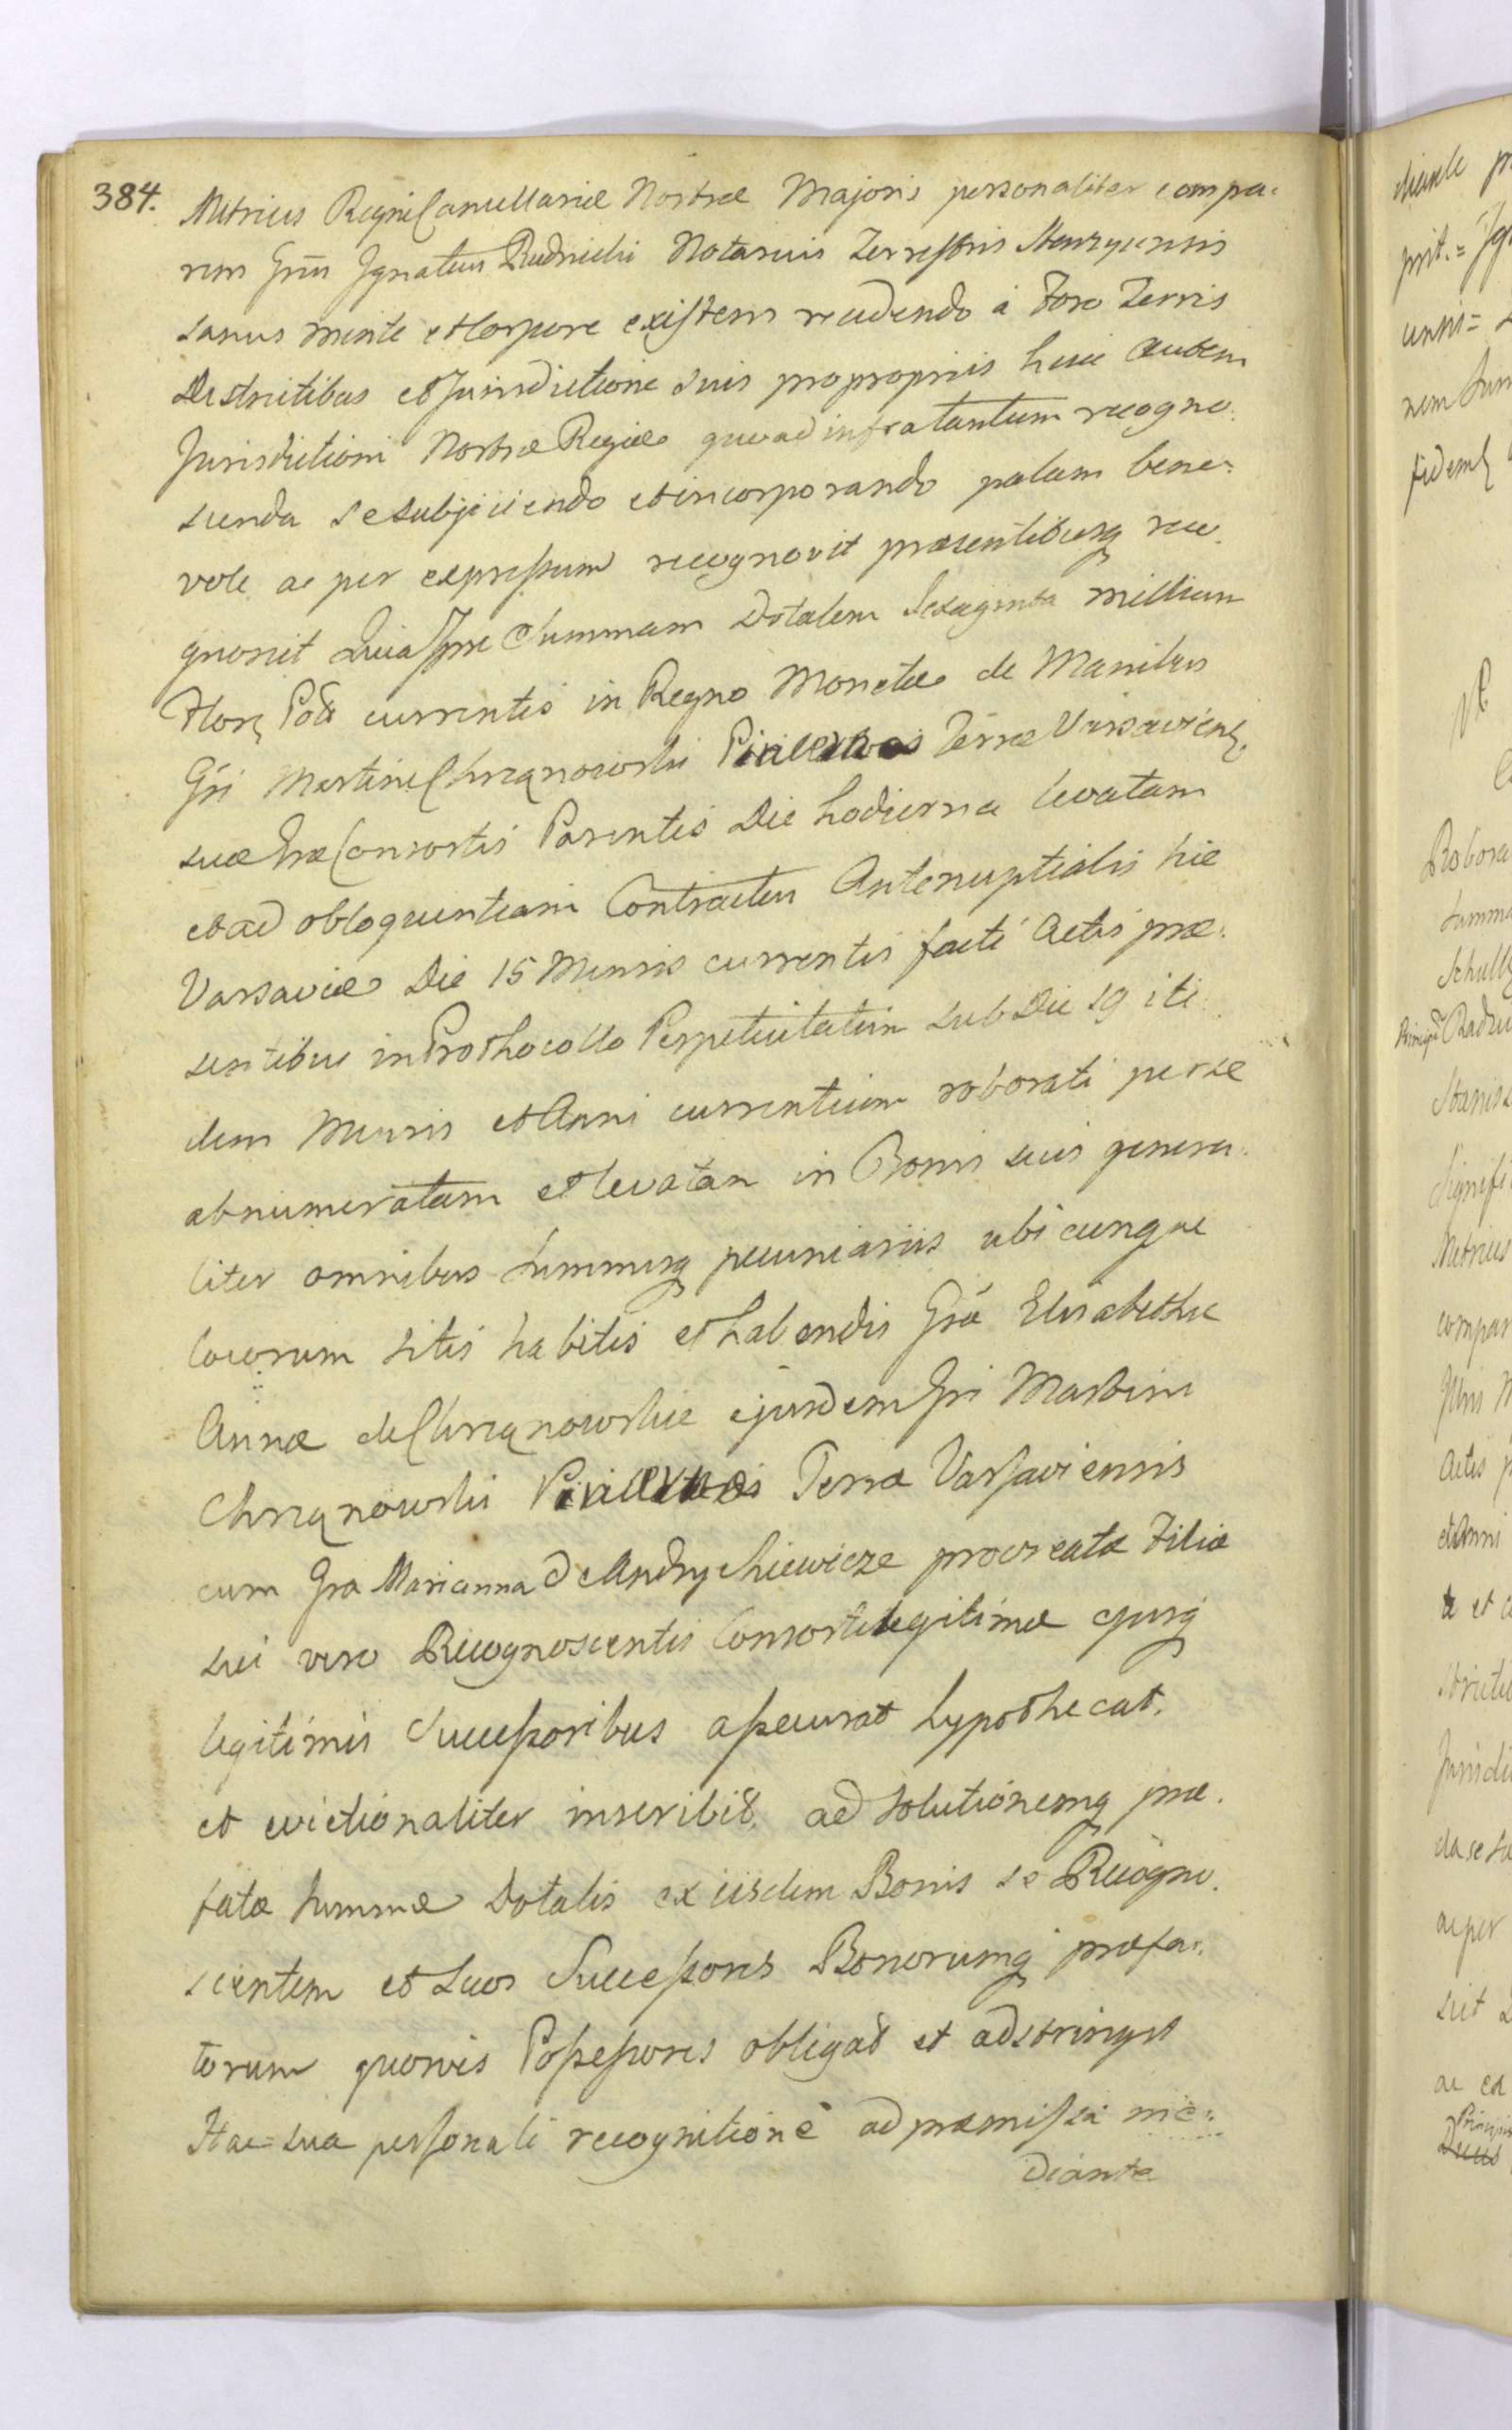 384.
Metrices Regni Cancellariæ Nostræ Majoris personaliter compa-
rens Gr̃us Ignatius Rudnicki Notarius Terrestris Stenzycensis
sanus mente et Corpore existens recedendo à Foro Terris
Districtibus et Jurisdictione suis propropriis huic autem
Jurisdictioni Nostræ Regiæ quoad infra tantum recogno-
scenda se subjiciendo et incorporando palam bene-
vole ac per expressum recognovit præsentibusq reco-
gnoscit Quia Ipse Summam Dotalem Sexaginta millium
Flor Pol currentis in Regno Monetæ de Manibus
Gr̃i Martini Chrząnowski Pincernæ Terræ Varsaviens
suæ hræ Consortis Parentis Die hodierna levatam
et ad obloquentiam Contractus Antenuptialis hic
Varsaviæ Die 15 Mensis currentis facti Actis præ-
sentibus in Prothocollo Perpetuitatum sub Die 19 iti-
dem Mensis et Anni currentium roborati per se
abnumeratam et levatam in Bonis suis genera-
liter omnibus Summisq pecuniariis ubicunque
locorum sitis habitis et habendis Gr̃æ Elisabethæ
Annæ de Chrząnowskie ejusdem Gr̃i Martini
Chrząnowski Pincernæ Terræ Varsaviensis
cum Gra Marianna de Andrychiewicze procreatæ Filiæ
sui vero Recognoscentis Consorti legitimæ ejusq
legitimis Successoribus assecurat hypothecat.
et evictionaliter inscribit, ad solutionemq præ-
fatæ Summæ Dotalis ex iisdem Bonis se Recogno-
scentem et suos Successores Bonorumq præfa-
torum quosvis Possessores obligat et adstringit
Hac sua personali recognitione ad præmissa me-
diante